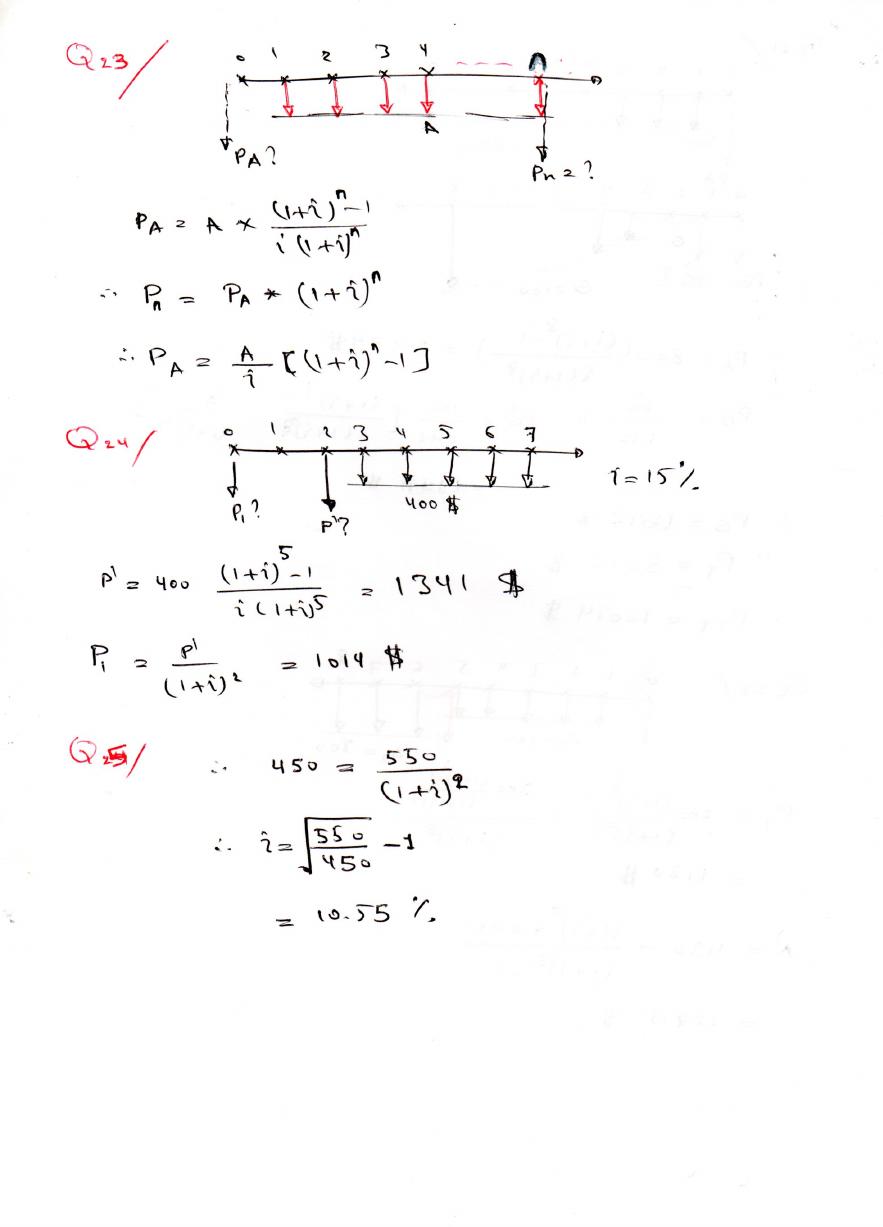 Q23/
0 1 2 3 4 --- n
A
PA?
Pn = ?
PA = A × ((1+i)^n - 1) / (i (1+i)^n)
∴ Pn = PA * (1+i)^n
∴ PA = A/i [(1+i)^n - 1]
Q24/
0 1 2 3 4 5 6 7
i = 15 %
400 $
P1?
P'?
P' = 400 ((1+i)^5 - 1) / (i (1+i)^5) = 1341 $
P1 = P' / (1+i)^2 = 1014 $
Q25/
∴ 450 = 550 / (1+i)^2
∴ i = √(550/450) - 1
= 10.55 %